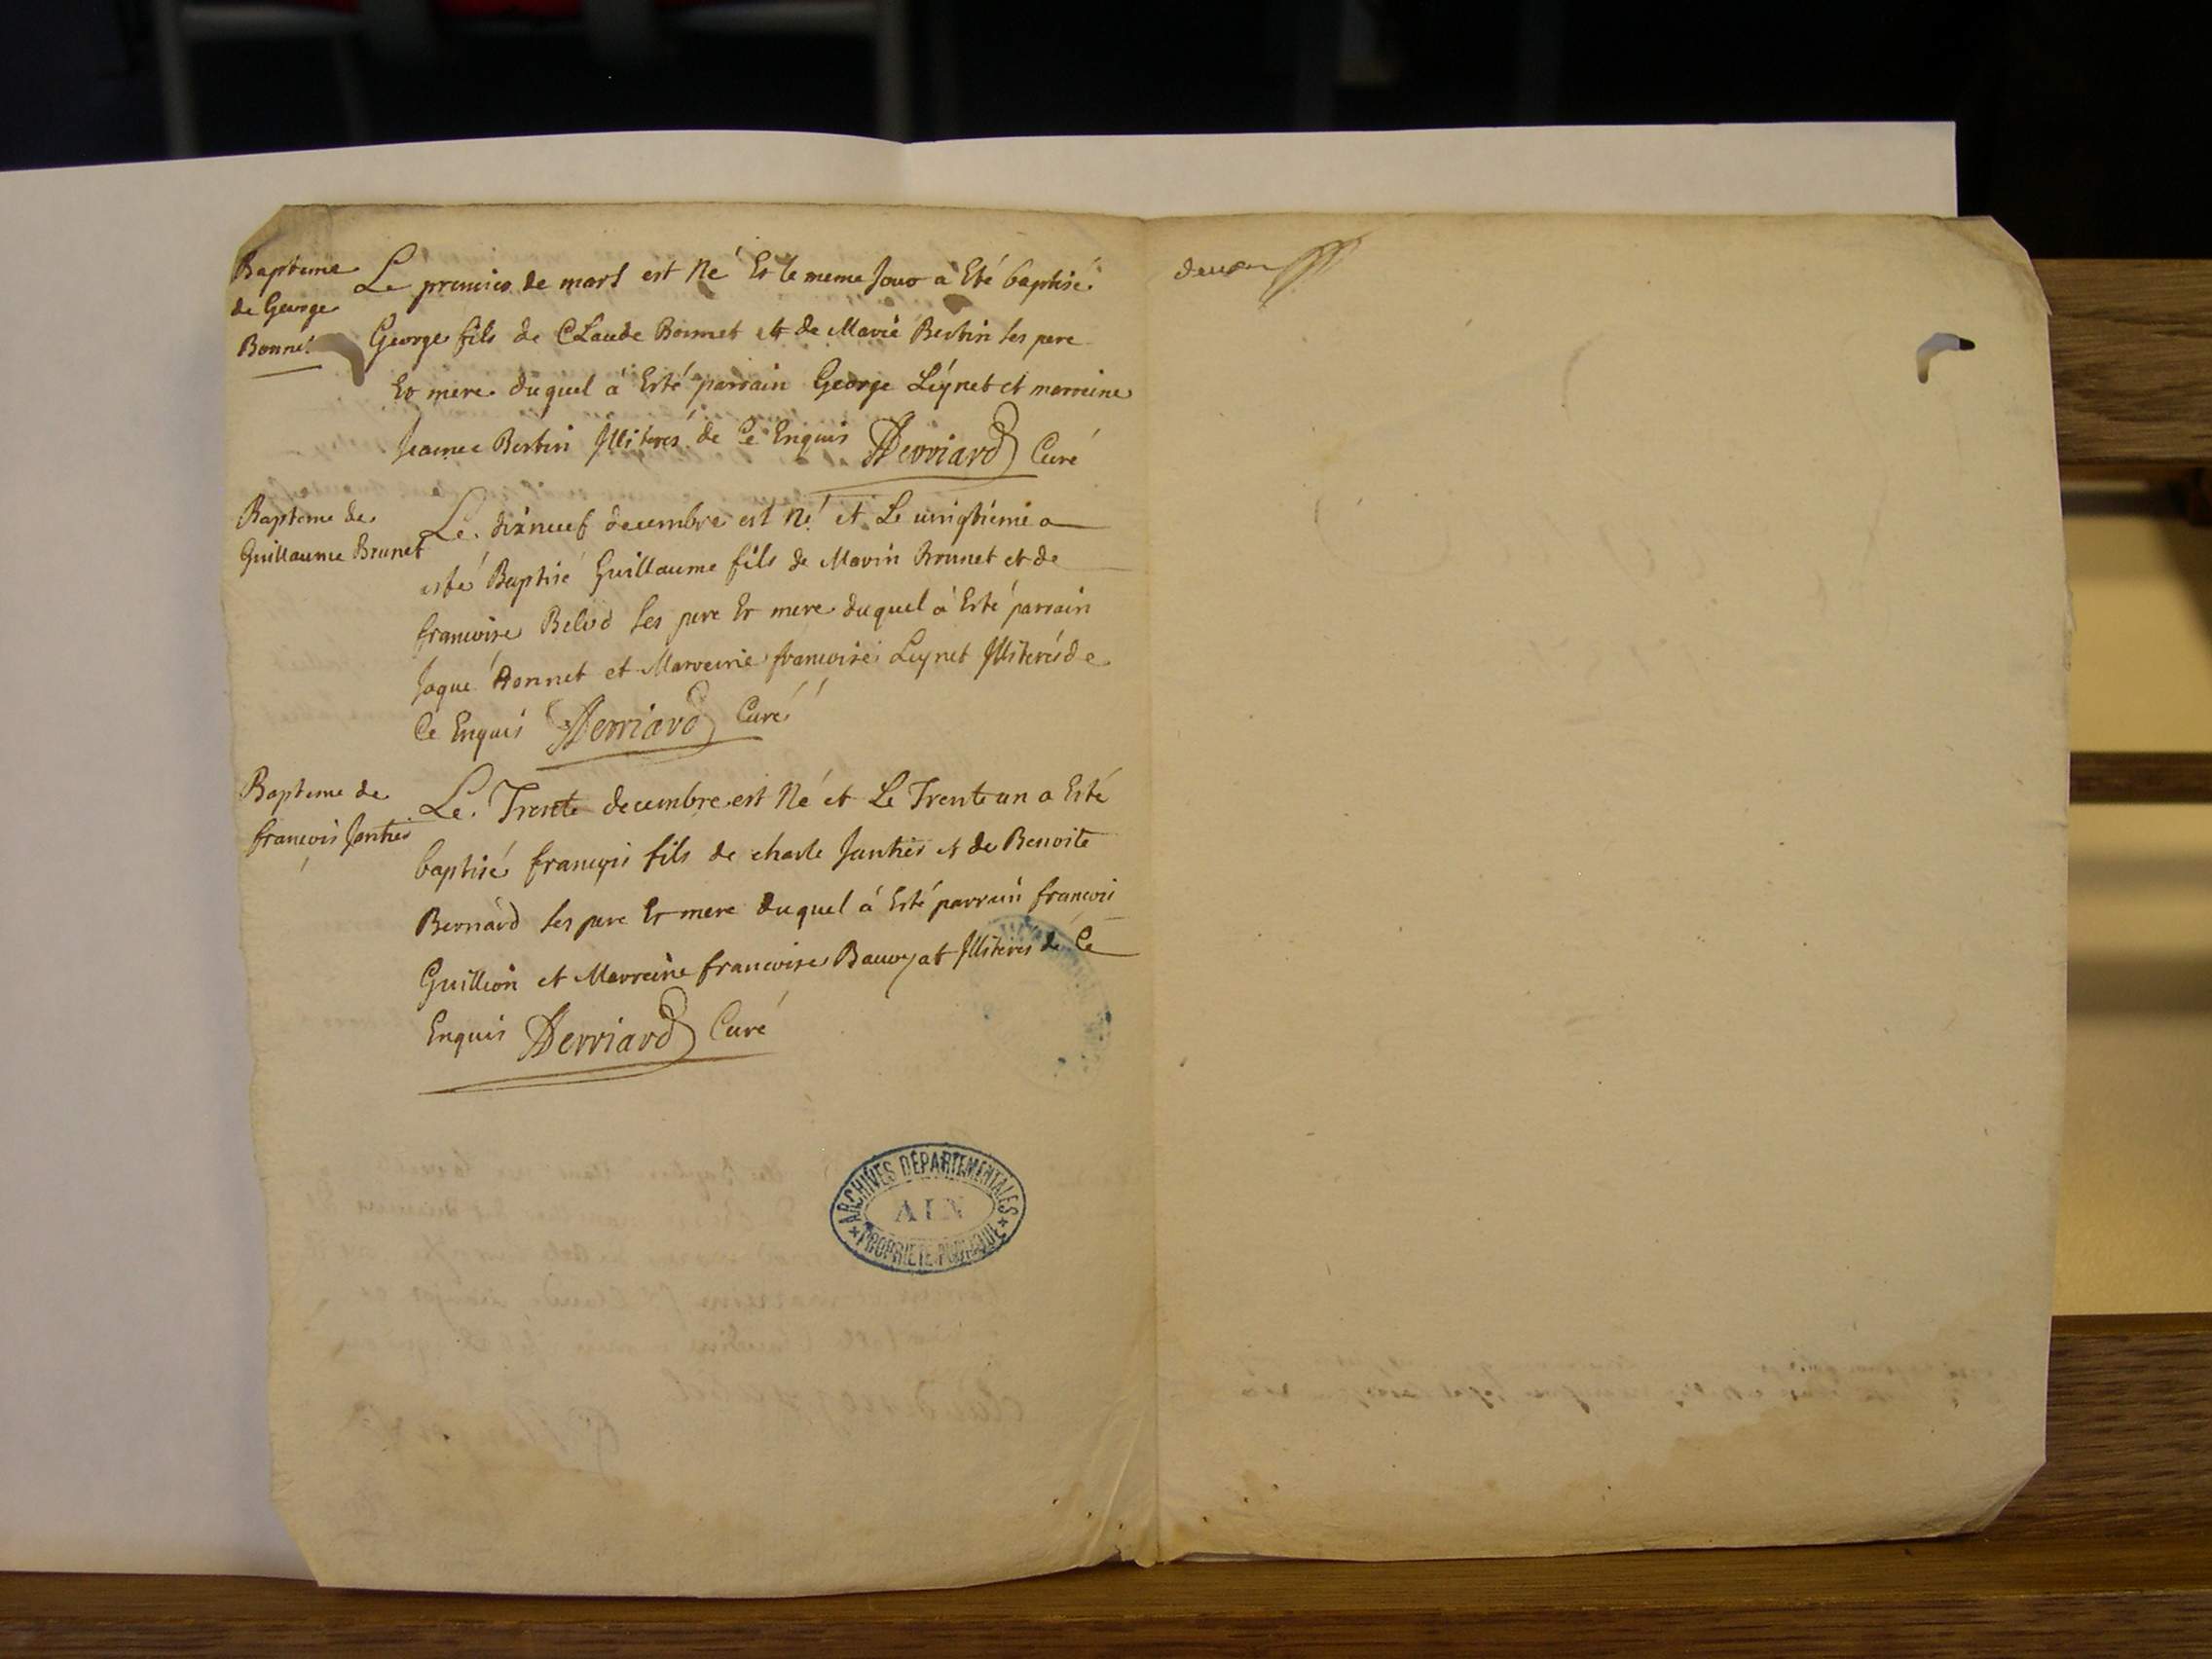 Bapteme
de George
Bonnet
Le premier de mars est Né Et le meme Jour à Eté baptisé
George fils de CLaude Bonnet et de Marie Berbin ses pere
Et mere duquel à Esté parrain George Léynet et marreine
Jeanne Berbin Jlliteres de Ce Enquis Derriard Curé
Bapteme de
Guillaume Brunet
Le dixneuf decembre est Né et Le vingtieme a
esté Baptisé Guillaume fils de Marin Brunet et de
francoise Belod ses pere Et mere duquel à Esté parrain
Jaque Bonnet et Marreine francoise Leynet Jlliterés de
Ce Enquis Derriard Curé
Bapteme de
francois Janther
Le Trente decembre est Né et Le Trente un a Esté
baptisé francois fils de charle Janther et de Benoite
Bernard ses pere Et mere duquel à Esté parrain francois
Guillion et Marreine francoise Bauoyat Jlliteres de Ce
Enquis Derriard Curé
ARCHIVES DÉPARTEMENTALES
AIN
PROPRIÉTÉ PUBLIQUE